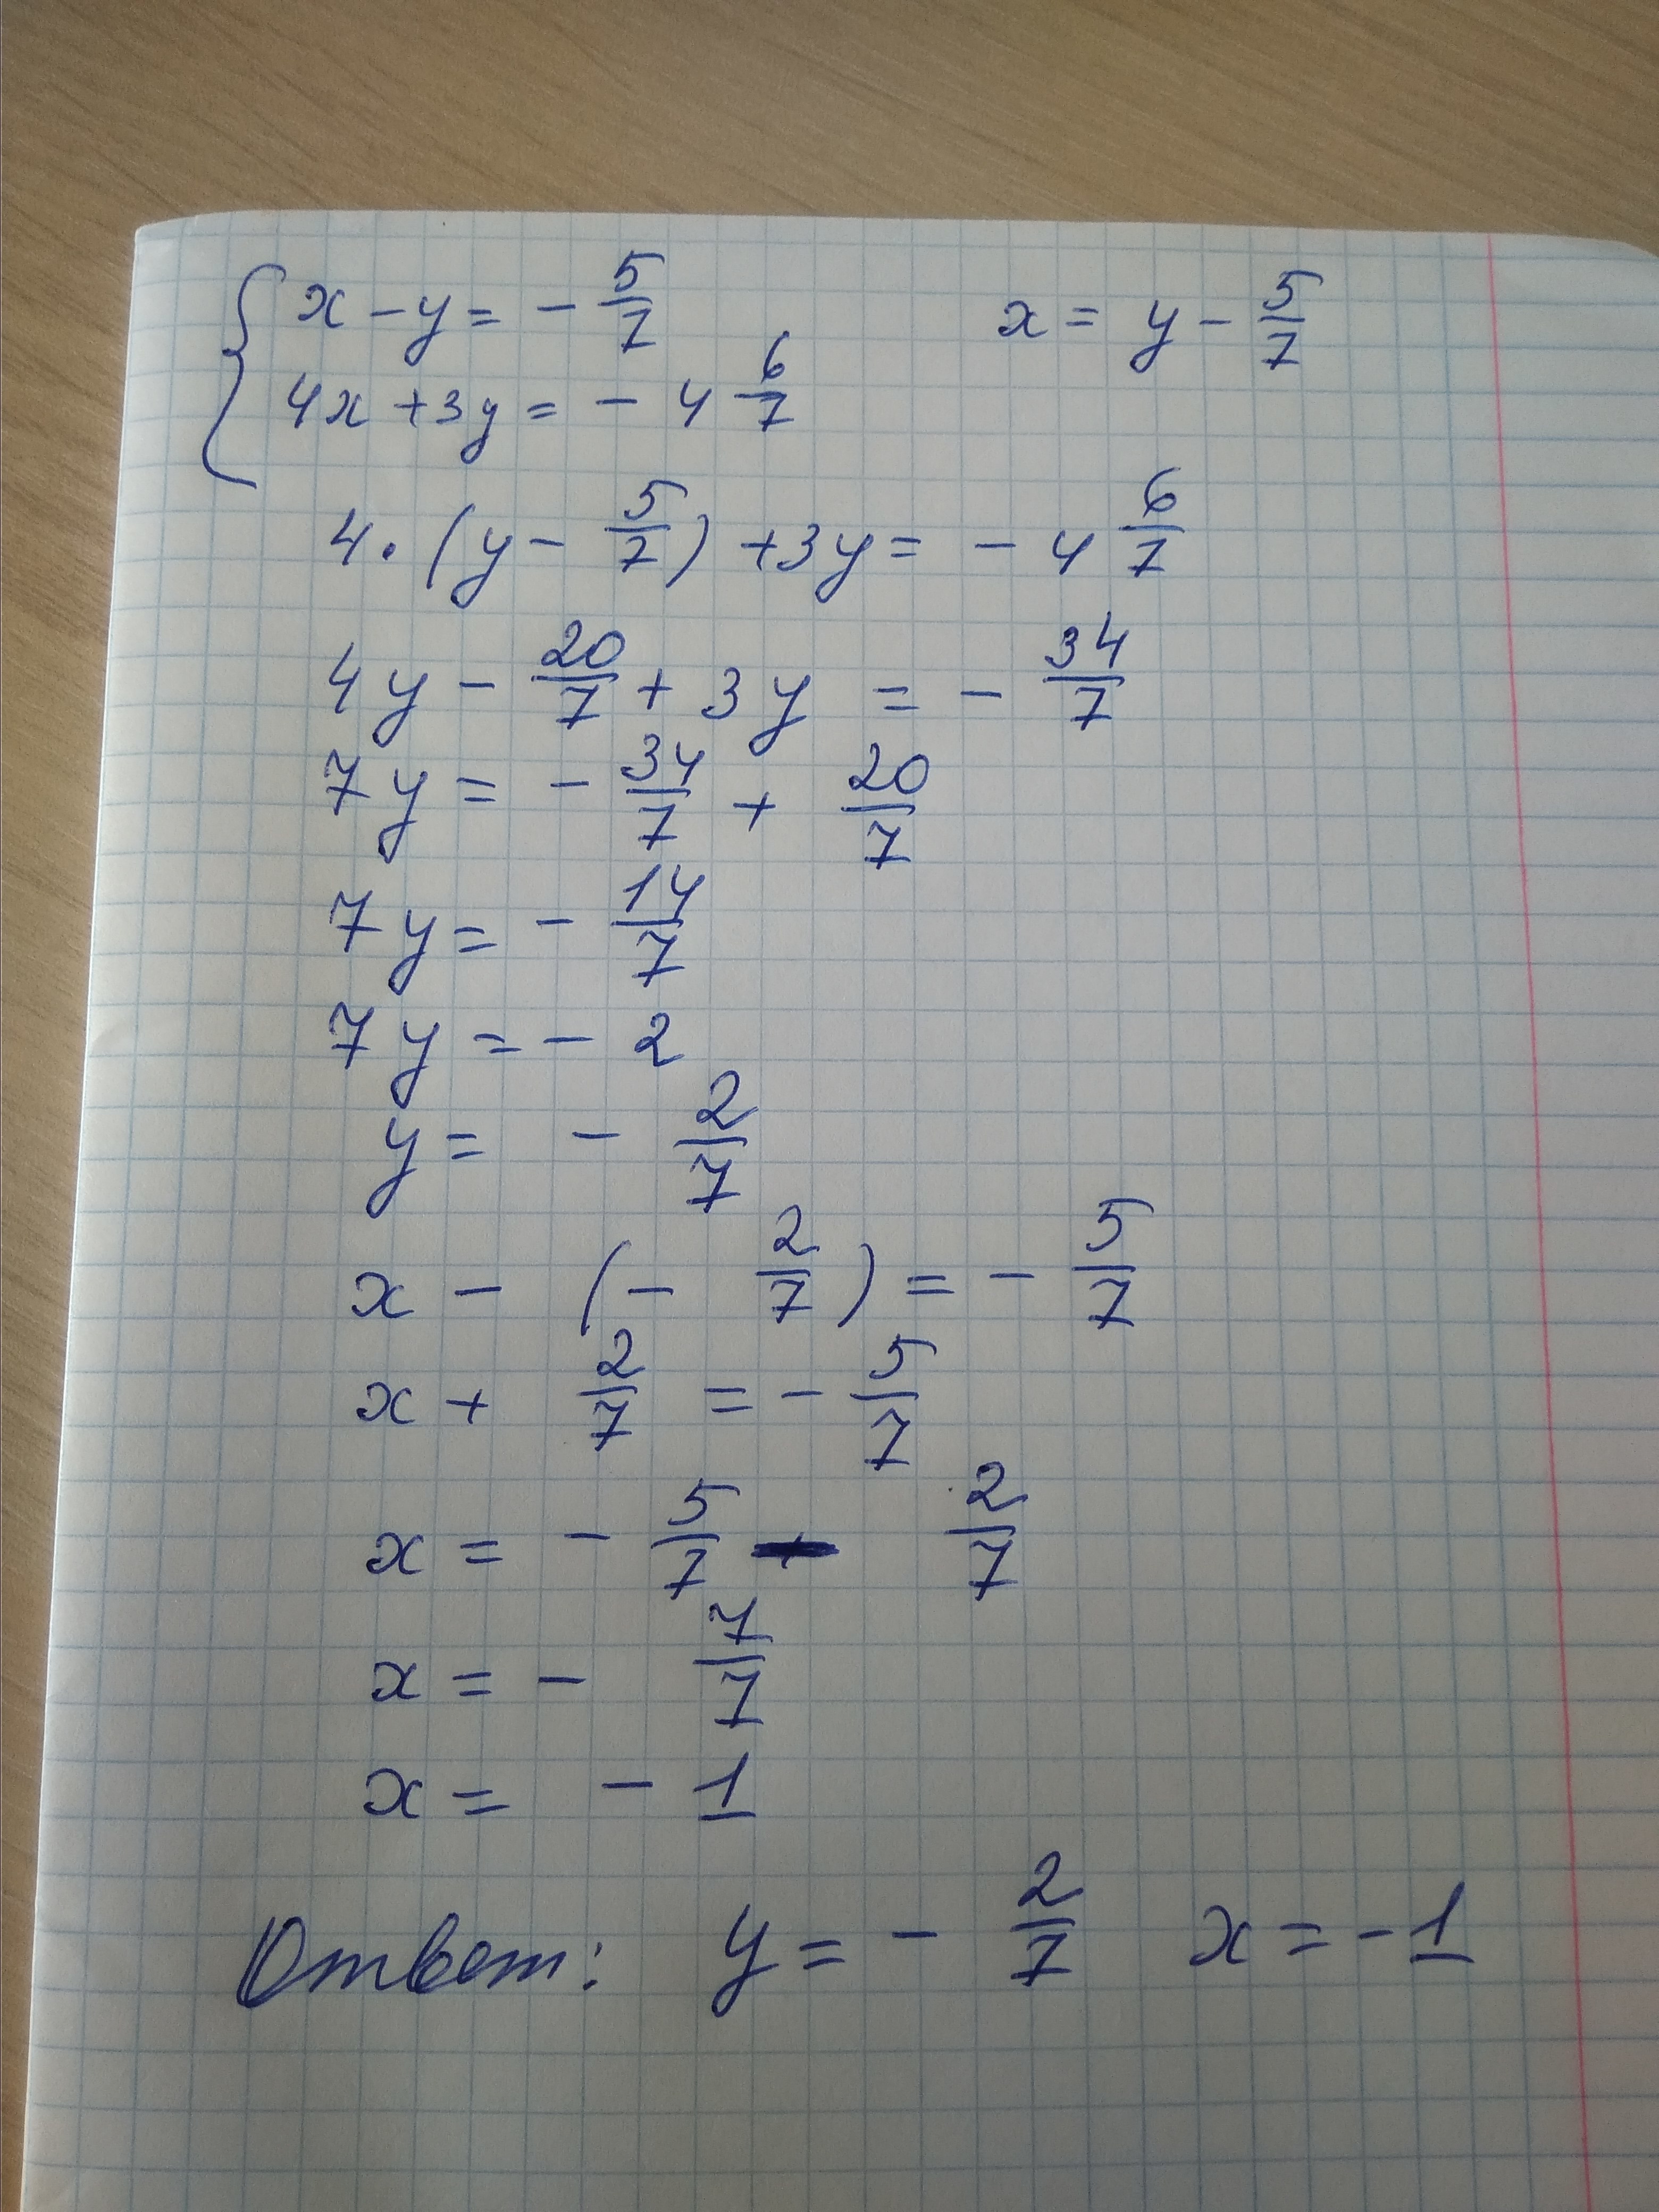 x - y = - 5/7 x = y - 5/7
4x + 3y = - 4 6/7
4 · (y - 5/7) + 3y = - 4 6/7
4y - 20/7 + 3y = - 34/7
7y = - 34/7 + 20/7
7y = - 14/7
7y = - 2
y = - 2/7
x - (- 2/7) = - 5/7
x + 2/7 = - 5/7
x = - 5/7 - 2/7
x = - 7/7
x = - 1
Ответ: y = - 2/7 x = - 1